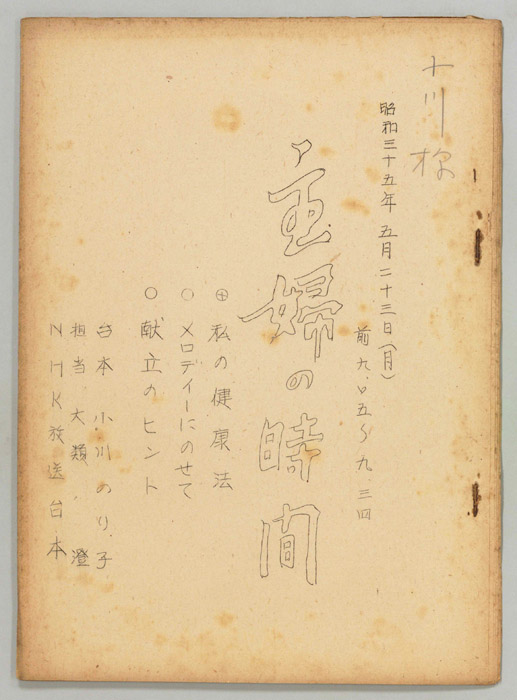 小川様
昭和三十五年五月二十三日(月)
前九.〇五〜九.三〇
主婦の時間
⊕私の健康法
○メロディーにのせて
○献立のヒント
台本 小川のり子
担当 大類 澄
NHK放送台本